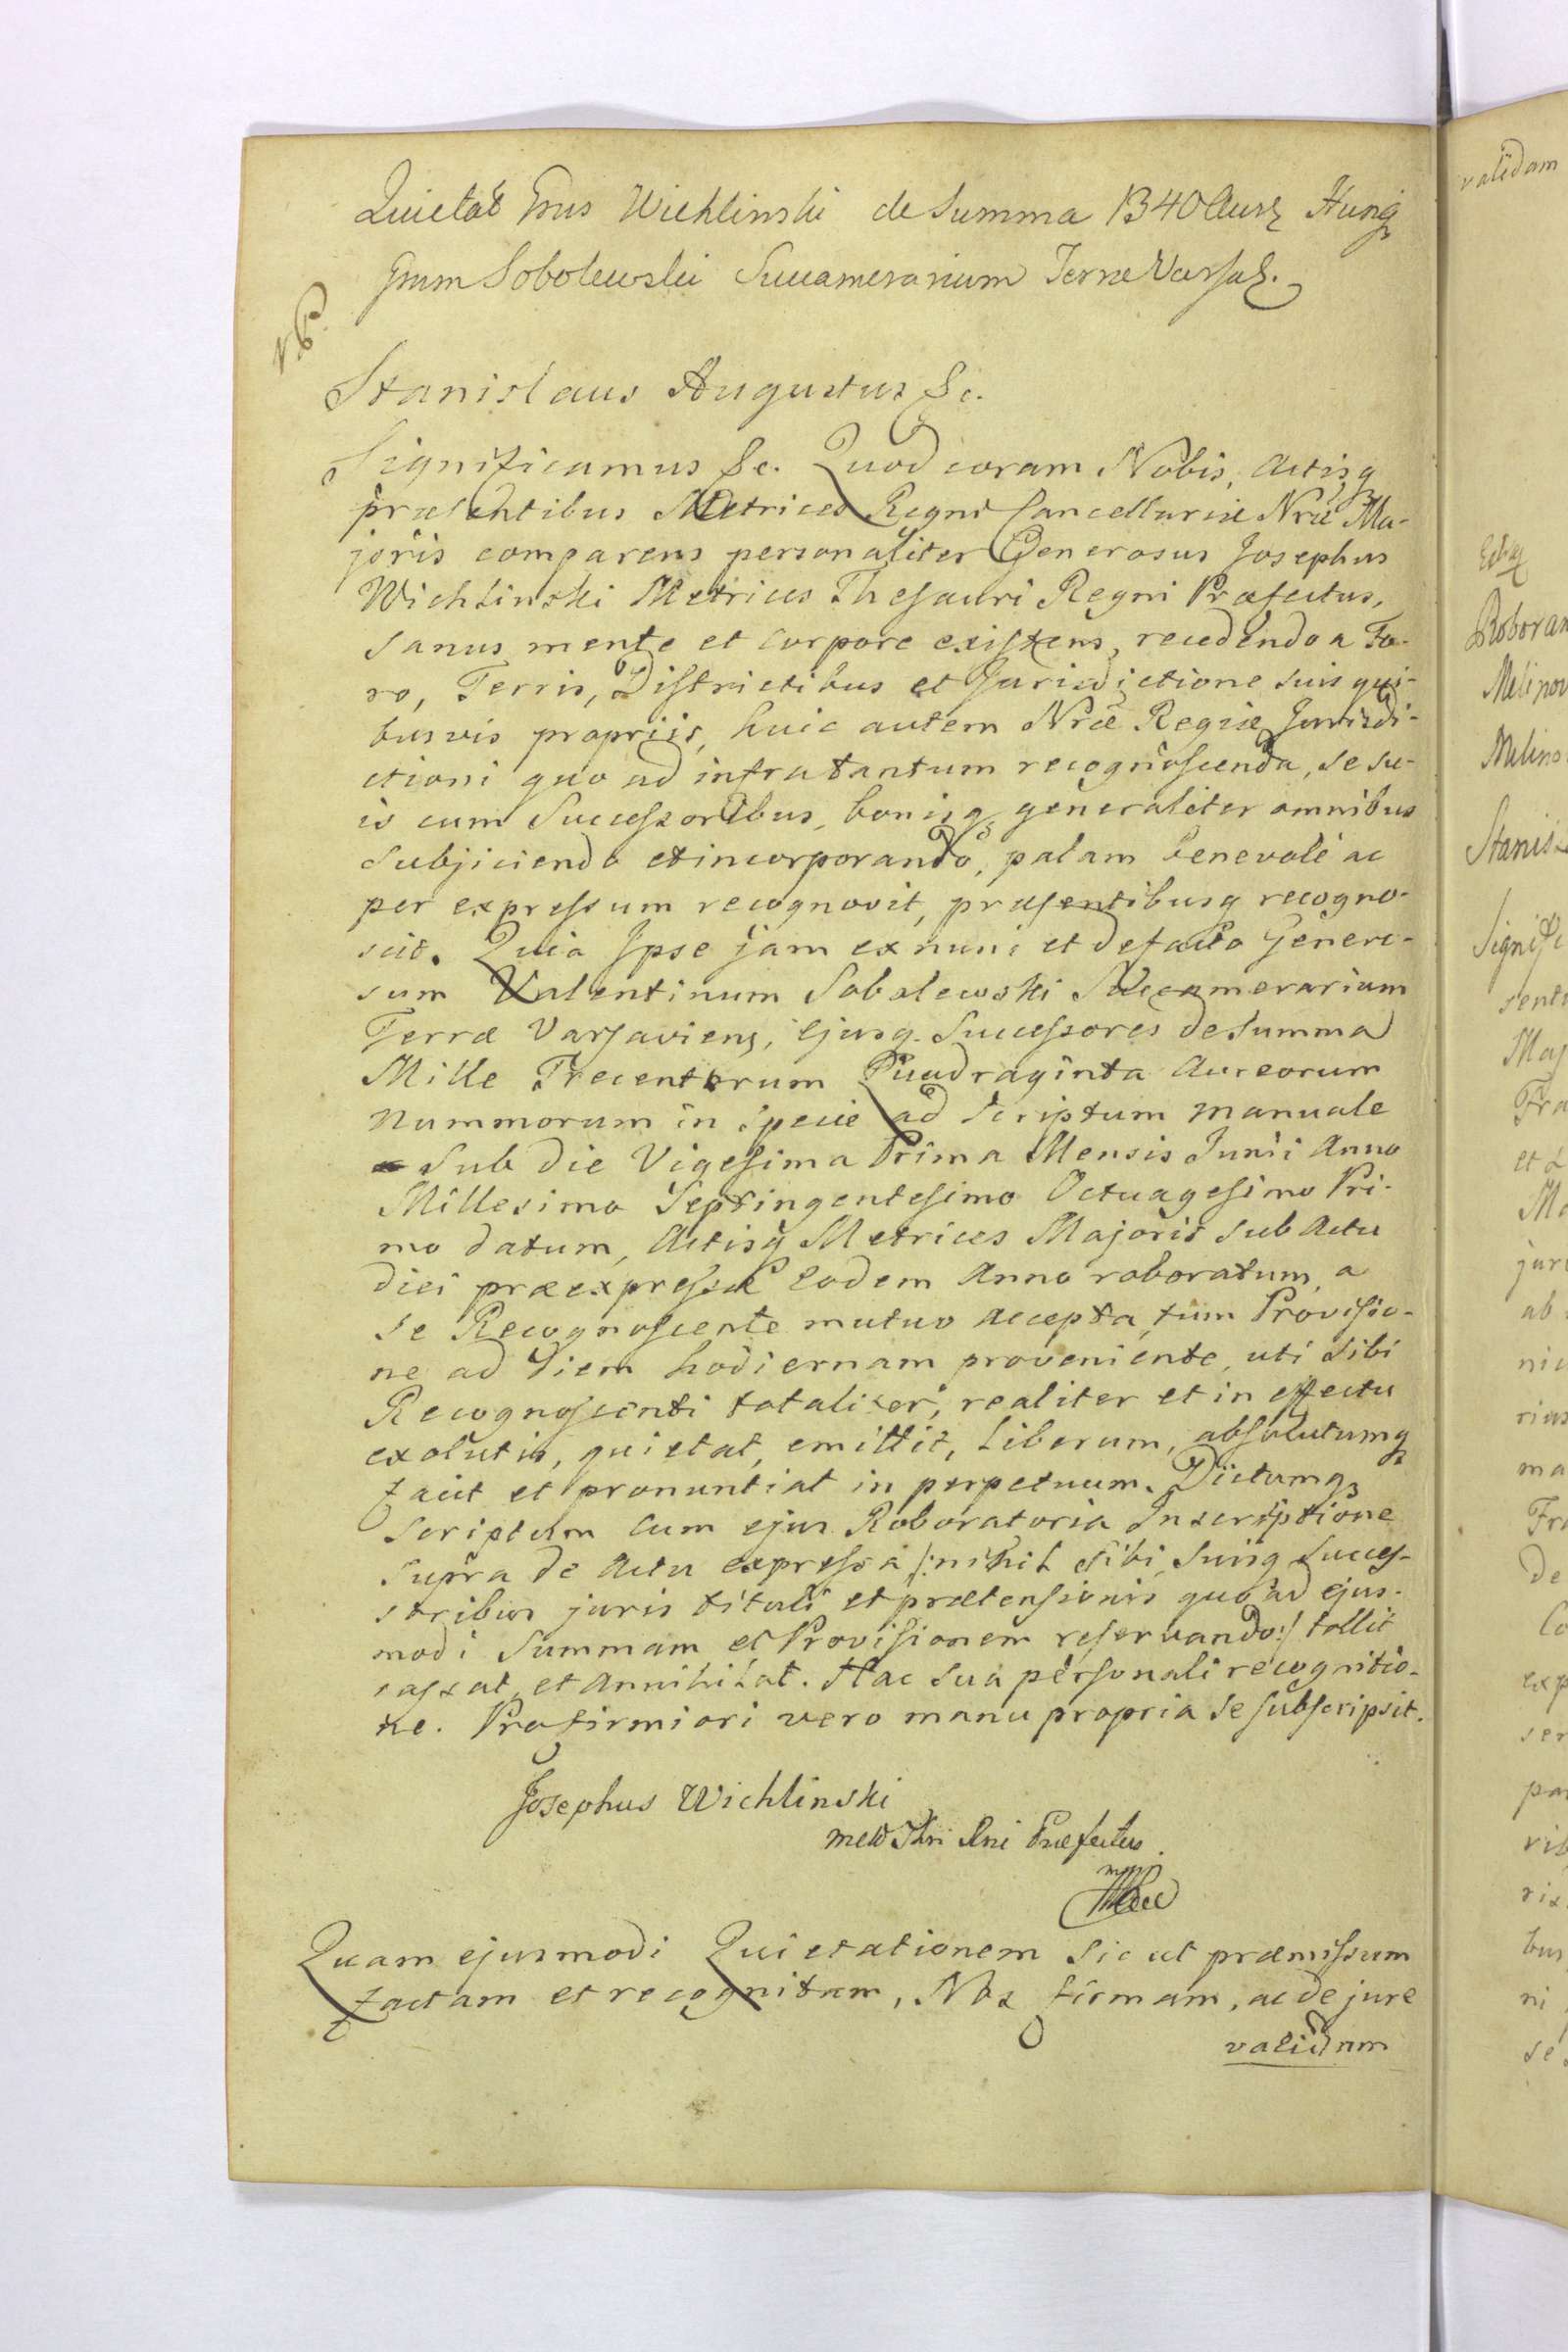 Quietat Gnus Wichlinski de Summa 1340 Aur Hung
Gnum Sobolewski Succamerarium Terræ Varsav.
Stanislaus Augustus &c.
Significamus &c. Quod coram Nobis, Actisq
præsentibus Metrices Regni Cancellariæ Nræ Ma-
joris comparens personaliter Generosus Josephus
Wichlinski Metrices Thesauri Regni Præfectus,
sanus mente et corpore existens, recedendo a Fo-
ro, Terris, Districtibus et Jurisdictione suis qui-
busvis propriis, huic autem Nræ Regiæ Jurisdi-
ctioni quo ad infra tantum recognoscenda, se su-
is cum Successoribus, bonisq generaliter omnibus
subjiciendo et incorporando, palam benevolè ac
per expressum recognovit, præsentibusq recogno-
scit. Quia Ipse jam ex nunc et de facto Genero-
sum Valentinum Sobolewski Succamerarium
Terræ Varsaviens, Ejusq. Successores de Summa
Mille Trecentorum Quadraginta Aureorum
Nummorum in Specie ad Scriptum manuale
Sub die Vigesima Prima Mensis Junii Anno
Millesimo Septingentesimo Octuagesimo Pri-
mo datum, Actisq Metrices Majoris sub Actu
diei præexpressæ eodem Anno roboratum, a
se Recognoscente mutuo accepta, tum Provisio-
ne ad diem hodiernam proveniente, uti sibi
Recognoscenti totaliter, realiter et in effectu
exolutis, quietat, emittit, liberum, absolutumq
facit et pronuntiat in perpetuum. Dictumq
Scriptum cum ejus Roboratoria Inscriptione
supra de Actu expressa /: nihil sibi, suisq Succes-
soribus juris tituli et prætensionis quo ad ejus-
modi Summam et Provisionem reservando :/ tollit
cassat, et Annihilat. Hac sua personali recognitio-
ne. Pro firmiori vero manu propria se subscripsit.
Josephus Wichlinski
Præfectus.
mpp
Quam ejusmodi Quietationem sic ut præmissum
factam et recognitam, Nos firmam, ac de jure
validam
validam
Stanis
Signifi